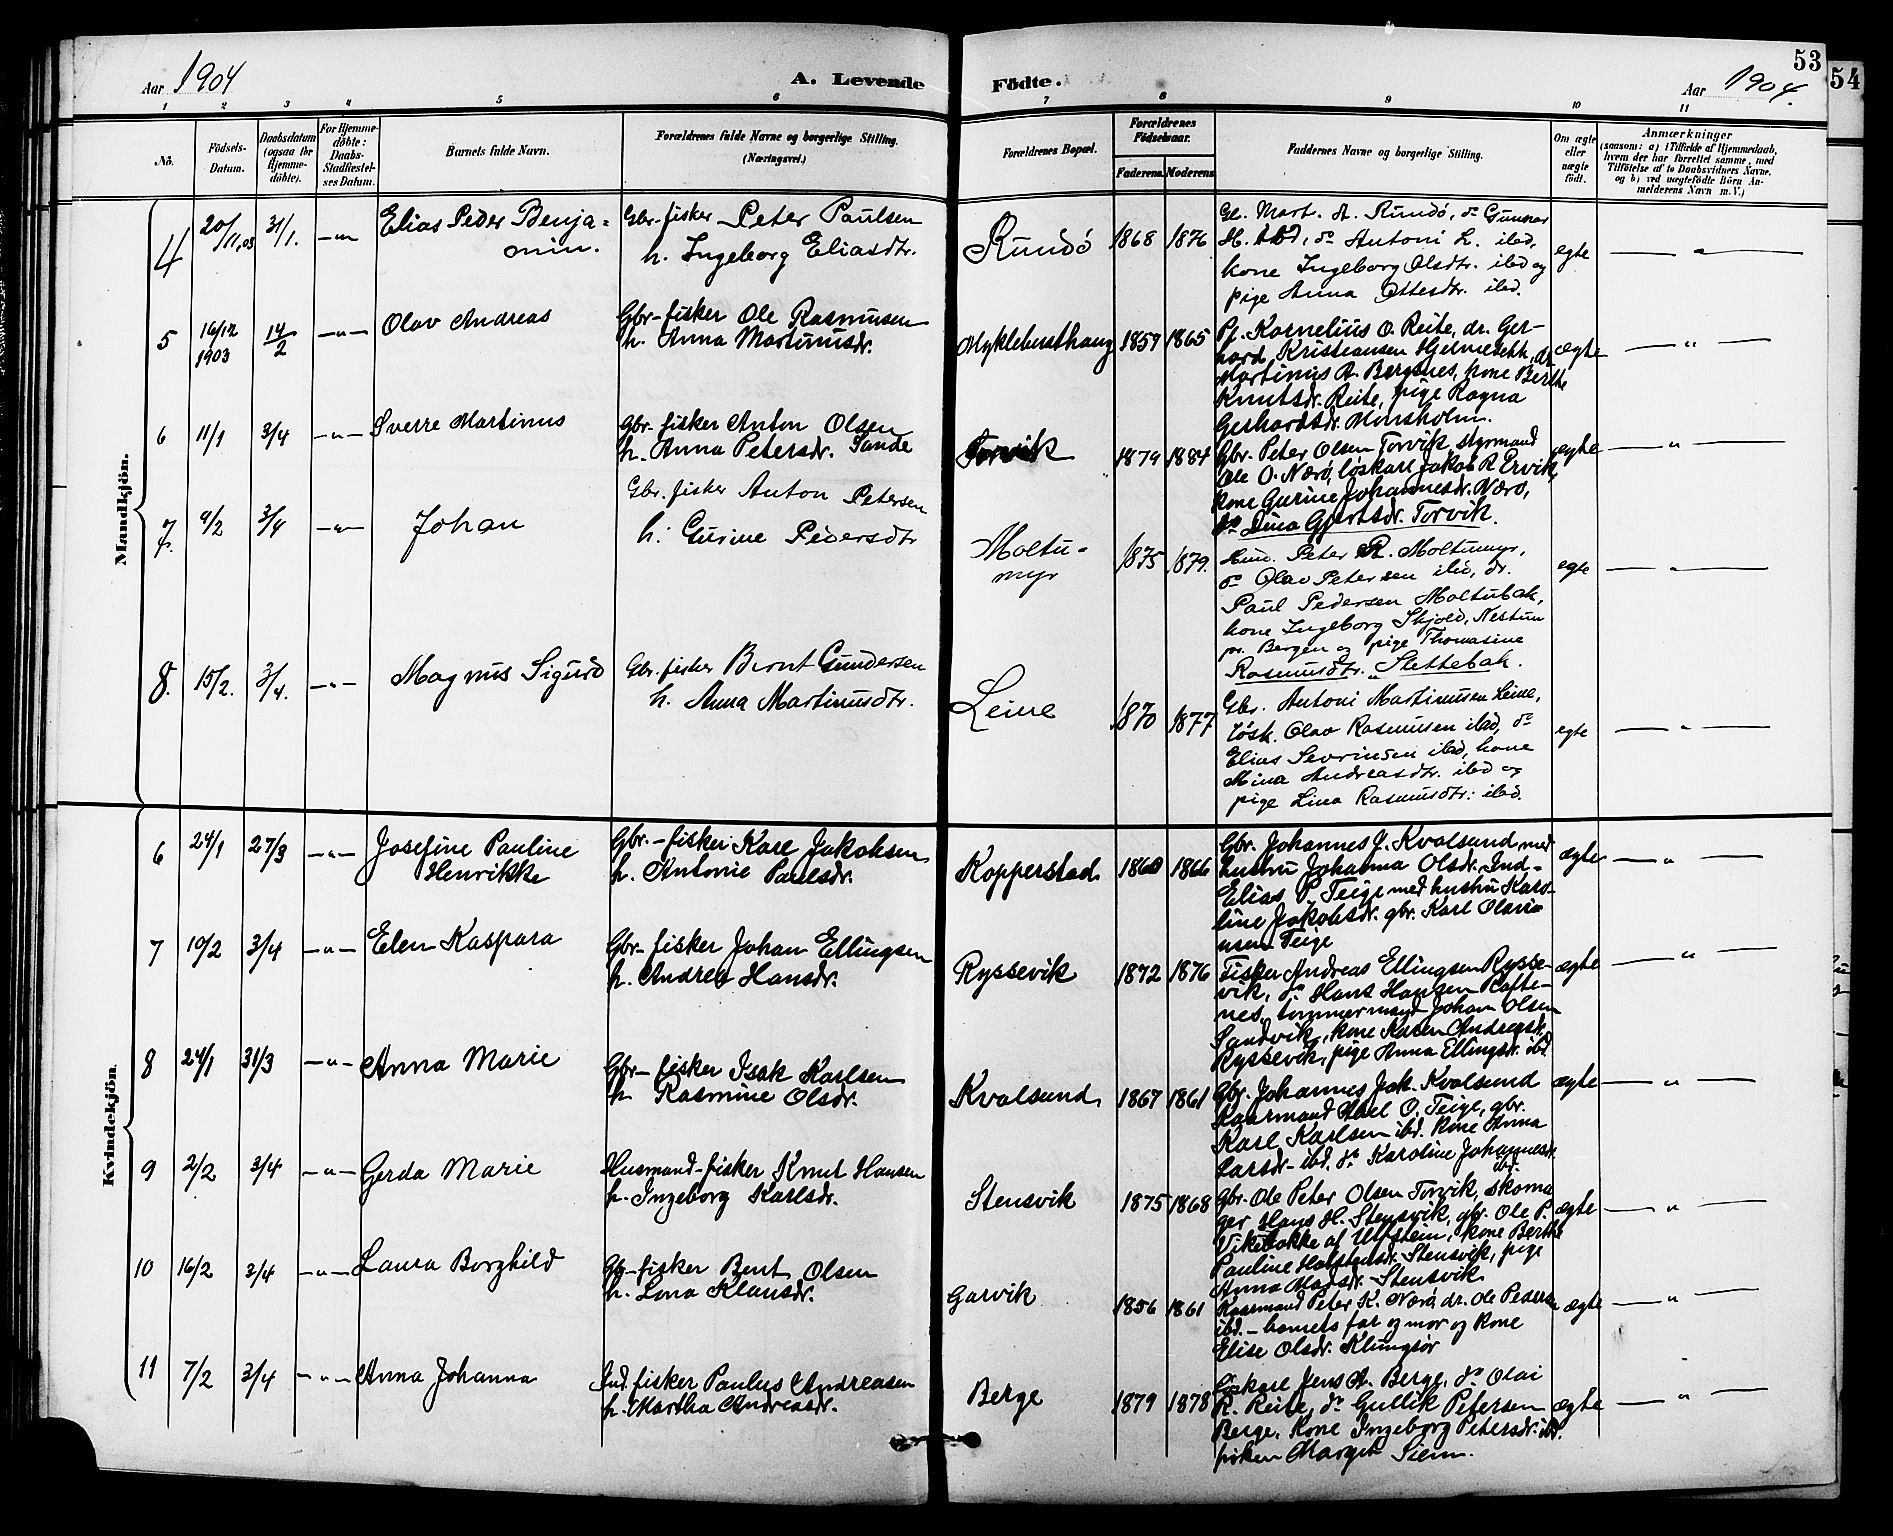 53
54
Aar 1904
A. Levende
Födte.
Aar 1904.
1 2 3 4 5 6 7 8 9 10 11
No.
Födsels-
Datum.
Daabsdatum
(ogsaa for
Hjemme-
döbte).
For Hjemme-
döbte:
Daabs-
Stadfæstel-
ses Datum.
Barnets fulde Navn.
Forældrenes fulde Navne og borgerlige Stilling.
(Næringsvei.)
Forældrenes Bopæl.
Forældrenes
Födselsaar.
Faderens. Moderens.
Faddernes Navne og borgerlige Stilling.
Om ægte
eller
uægte
födt.
Anmærkninger
(saasom: a) i Tilfælde af Hjemmedaab,
hvem der har forrettet samme, med
Tilföielse af to Daabsvidners Navne,
og b) ved uægtefödte Börn An-
melderens Navn m. V.)
Mandkjön.
4 20/11,03 31/1. —"— Elias Peder Benja-
min.
Gbr-fisker Peter Paulsen
h. Ingeborg Eliasdtr.
Rundö 1868 1876
Gl. Mart. A. Rundö, do Gunnar
H. ibd, do Antoni L. ibd,
kone Ingeborg Olsdtr. ibd og
pige Anna Ottesdtr. ibd.
egte — " —
5 16/12 1903 14/2 —"— Olav Andreas
Gbr-fisker Ole Rasmusen
h. Anna Martinusdr.
Myklebusthaug 1859 1865
Pf. Kornelius O. Reite, dr. Ger-
hard Kristiansen Hjelmeseth, dr
Martinus A. Bergsnes, kone Berthe
Knutsdr. Reite, pige Ragna
Gerhardsdr. Monsholm.
ægte — " —
6 11/1 3/4 —"— Sverre Martinus
Gbr-fisker Anton Olsen
h. Anna Petersdr. Sande
Torvik 1879 1884
Gbr. Peter Olsen Torvik styrmand
Ole O. Nærö, löskarl Jakob R. Ervik,
kone Gurine Johannesdr. Nærö,
do Lina Gjertsdr. Torvik.
ægte — " —
7. 9/2 3/4 —"— Johan
Gbr. fisker Anton Petersen
h. Gurine Pedersdtr
Moltu-
myr
1875 1879.
Hum. Peter R. Moltumyr,
do Olav Petersen ibd, dr.
Paul Pedersen Moltubak,
kone Ingeborg Skjold, Nestun
pr. Bergen og pige Thomasine
Rasmusdtr. Slettebak.
egte — " —
8. 15/2. 3/4. —"— Magnus Sigurd
Gbr. fisker Bernt Gundersen
h. Anna Martinusdtr.
Leine 1870 1877
Gbr. Antoni Martinusen Leine,
Løsk. Olav Rasmusen ibd, do
Elias Sevrinsen ibd, kone
Mina Andreasdtr. ibd og
pige Lina Rasmusdtr: ibd.
egte — " —
Kvindekjön.
6 24/1 27/3 —"— Josefine Pauline
Henrikke
Gbr-fisker Karl Jakobsen
h. Antonie Paulsdr.
Kopperstad. 1860 1866
Gbr. Johannes J. Kvalsund med
hustru Johanna Olsdr. Ind-
Elias P. Teige med hustru Karo-
line Jakobsdr. gbr. Karl Olavi-
usen Teige
ægte — " —
7 10/2 3/4 —"— Elen Kaspara
Gbr-fisker Johan Ellingsen
h. Andrea Hansdr.
Ryssevik 1872 1876
Fisker Andreas Ellingsen Rysse-
vik, do Hans Hansen Rafte-
nes, tömmermand Johan Olsen
Sandvik, kone Karen Andreasdr.
Ryssevik, pige Anna Ellingsdr. ibd
ægte — " —
8 24/1 31/3 —"— Anna Marie
Gbr-fisker Isak Karlsen
h. Rasmine Olsdr.
Kvalsund. 1867 1861
Gbr. Johannes Jak. Kvalsund
Kaarmand Karl O. Teige, gbr.
Karl Karlsen ibd. kone Anna
Larsdr- ibd. do Karoline Johannesdr.
ibd.
ægte — " —
9 2/2 3/4 —"— Gerda Marie
Husmand-fisker Knut Hansen
h. Ingeborg Karlsdr.
Stensvik 1875 1868
Gbr. Ole Peter Olsen Torvik, skoma
ger Hans H. Stensvik, gbr. Ole P.
Vikebakke af Ulfstein, kone Berthe
Pauline Halfstensdr. Stensvik, pige
Anna Madsdr. Stensvik
ægte — " —
10 16/2 3/4 —"— Laura Borghild
Gb-fisker Bent Olsen
h. Lona Klausdr.
Garvik 1856 1861
Kaarmand Peter K. Nærö, dr. Ole Pedersen
ibd. – barnets far og mor og kone
Elise Olsdr. Klungsör
ægte — " —
11 7/2 3/4 —"— Anna Johanna
Ind. fisker Paulus Andreasen
h. Martha Andreasdr.
Berge 1879 1878
Löskarl Jens A. Berge, do Olai
R. Reite, do Gullik Petersen
Berge, kone Ingeborg Petersdr. ibd.
fröken Margit Siem.
ægte — " —